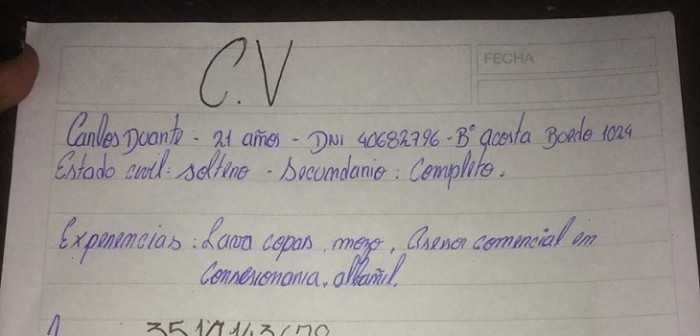 C.V
FECHA
Carlos Duarte - 21 años - DNI 40682796 - B° acosta Boedo 1024
Estado civil: soltero - Secundario: Completo.
Experiencias: Lava copas, mozo, Asesor comercial en
Conseionaria, albañil.